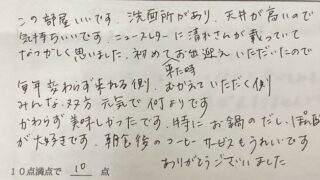 この部屋いいです、洗面所があり、天井が高いので
気持ちいいです、ニュースレターに清れさんが載っていて
なつかしく思いました、初めてお出迎えいただいたので
来た時
毎年変わらず来れる側、むかえていただく側
みんな、双方元気で何よりです
かわらず美味しかったです、特にお鍋のだし、ぽん酢
が大好きです、朝食後のコーヒーサービスもうれしいです
ありがとうございました
10点満点で 10 点